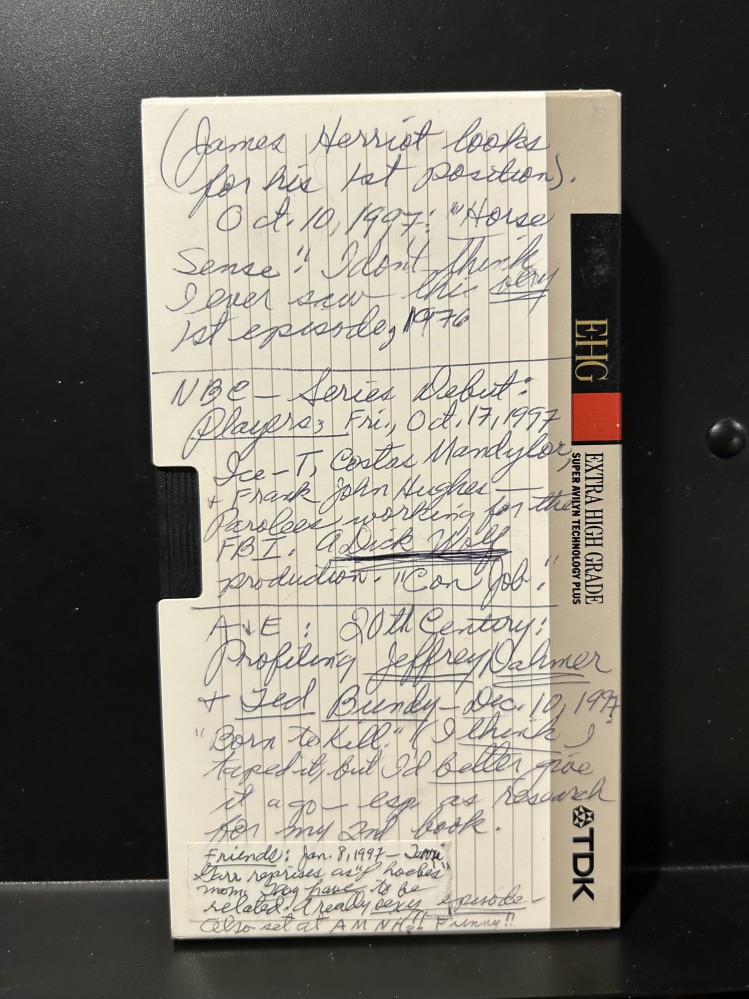 (James Herriot looks
for his 1st position).
Oct. 10, 1997: "Horse
Sense"! I don't think
I ever saw this very
1st episode, 1976
NBC — Series Debut:
Players; Fri., Oct. 17, 1997
Ice-T, Costas Mandylor,
+ Frank John Hughes —
Parolees working for the
FBI. A Dick Wolf
production. "Con Job."
A & E: 20th Century:
Profiling Jeffrey Dahmer
+ Ted Bundy — Dec. 10, 1997
"Born to Kill." (I think I
taped it, but I'd better give
it a go — esp as research
for my 2nd book.
Friends: Jan. 8, 1997 — Terri
Garr reprises as "Phoebes"
mom. They have to be
related. A really sexy episode —
Also set at AMNH!! Funny!!
EHG
EXTRA HIGH GRADE
SUPER AVILYN TECHNOLOGY PLUS
TDK